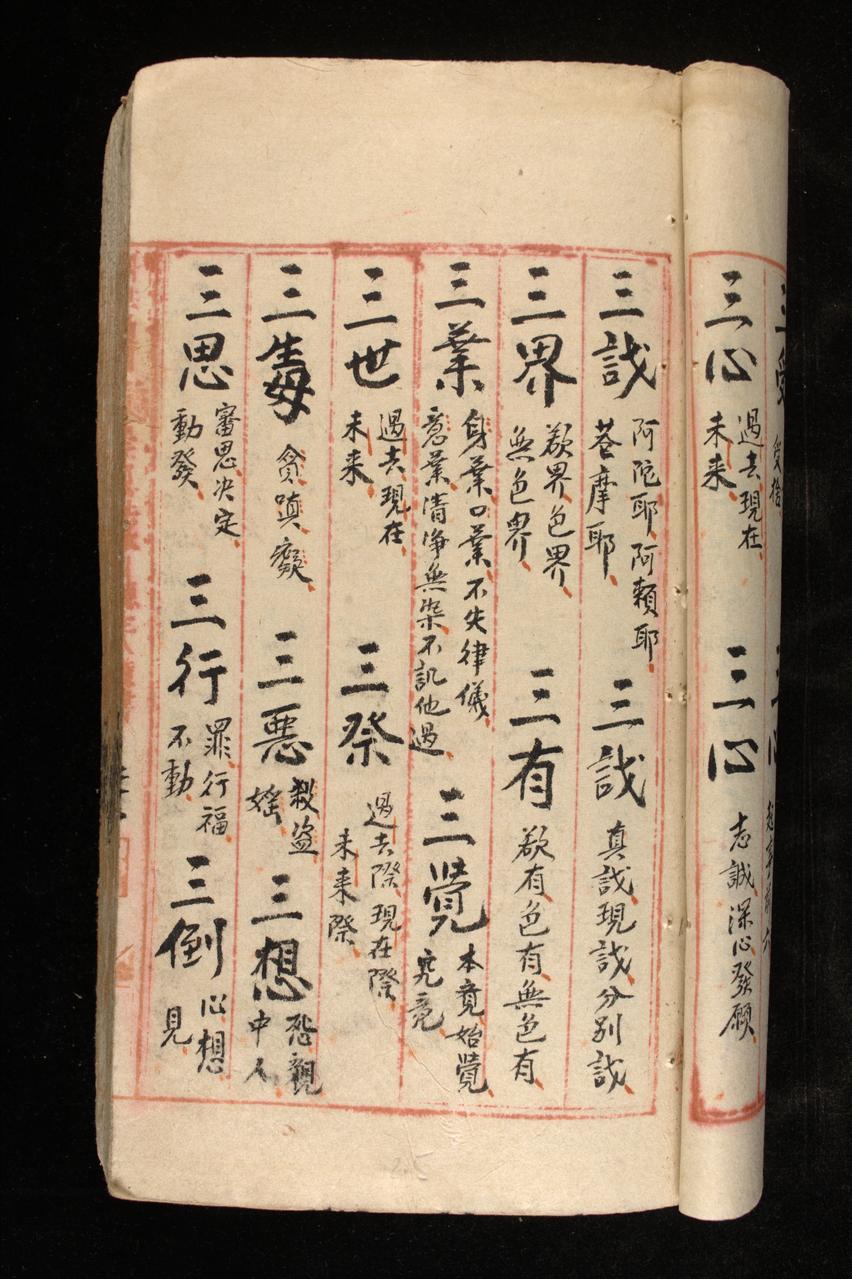 三心
過去現在
未来
三心
志誠深心發願
三識
阿陀耶阿賴耶
菴摩耶
三識
真識現識分別識
三界
欲界色界
無色界
三有
欲有色有無色有
三業
身業口業不失律儀
意業清淨無染不訊他過
三覺
本竟始覺
究竟
三世
過去現在
未来
三祭
過去際現在際
未来際
三毒
貪瞋癡
三惡
殺盗
婬
三想
怨親
中人
三思
審思决定
動發
三行
罪行福
不動
三倒
心想
見